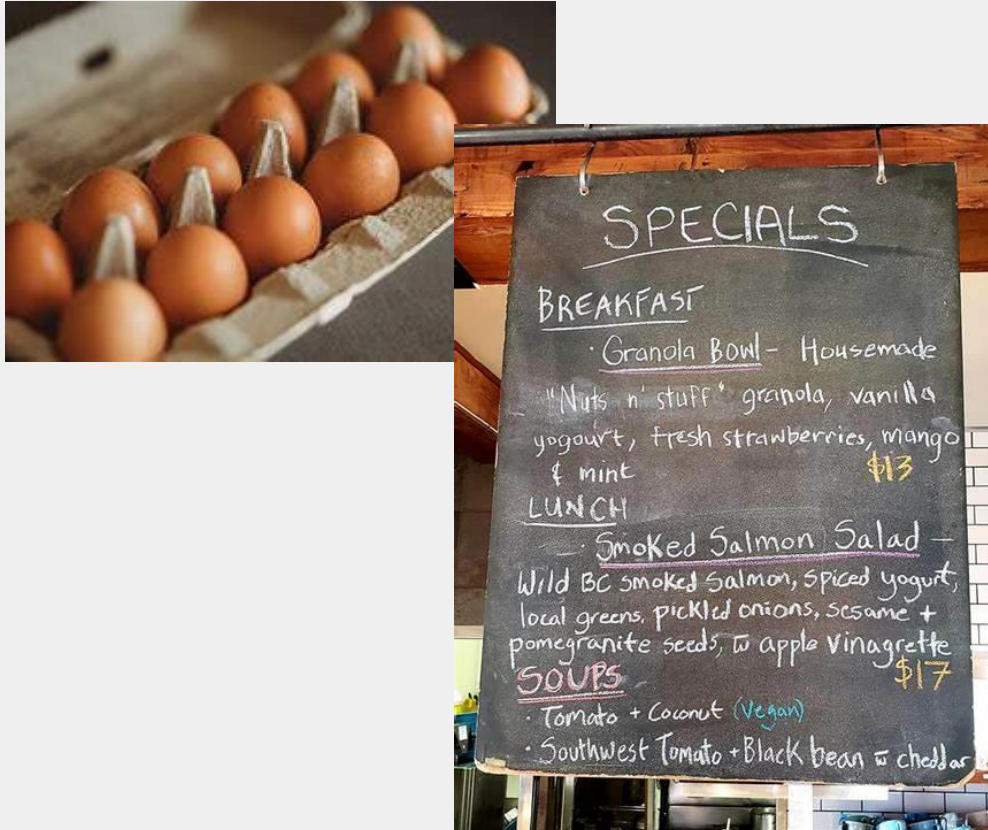 SPECIALS
BREAKFAST
· Granola Bowl - Housemade
"Nuts n' stuff" granola, vanilla
yogourt, fresh strawberries, mango
& mint $13
LUNCH
· Smoked Salmon Salad -
Wild BC smoked salmon, spiced yogurt,
local greens, pickled onions, sesame +
pomegranite seeds, w apple vinagrette
$17
SOUPS
· Tomato + Coconut (Vegan)
· Southwest Tomato + Black bean w cheddar